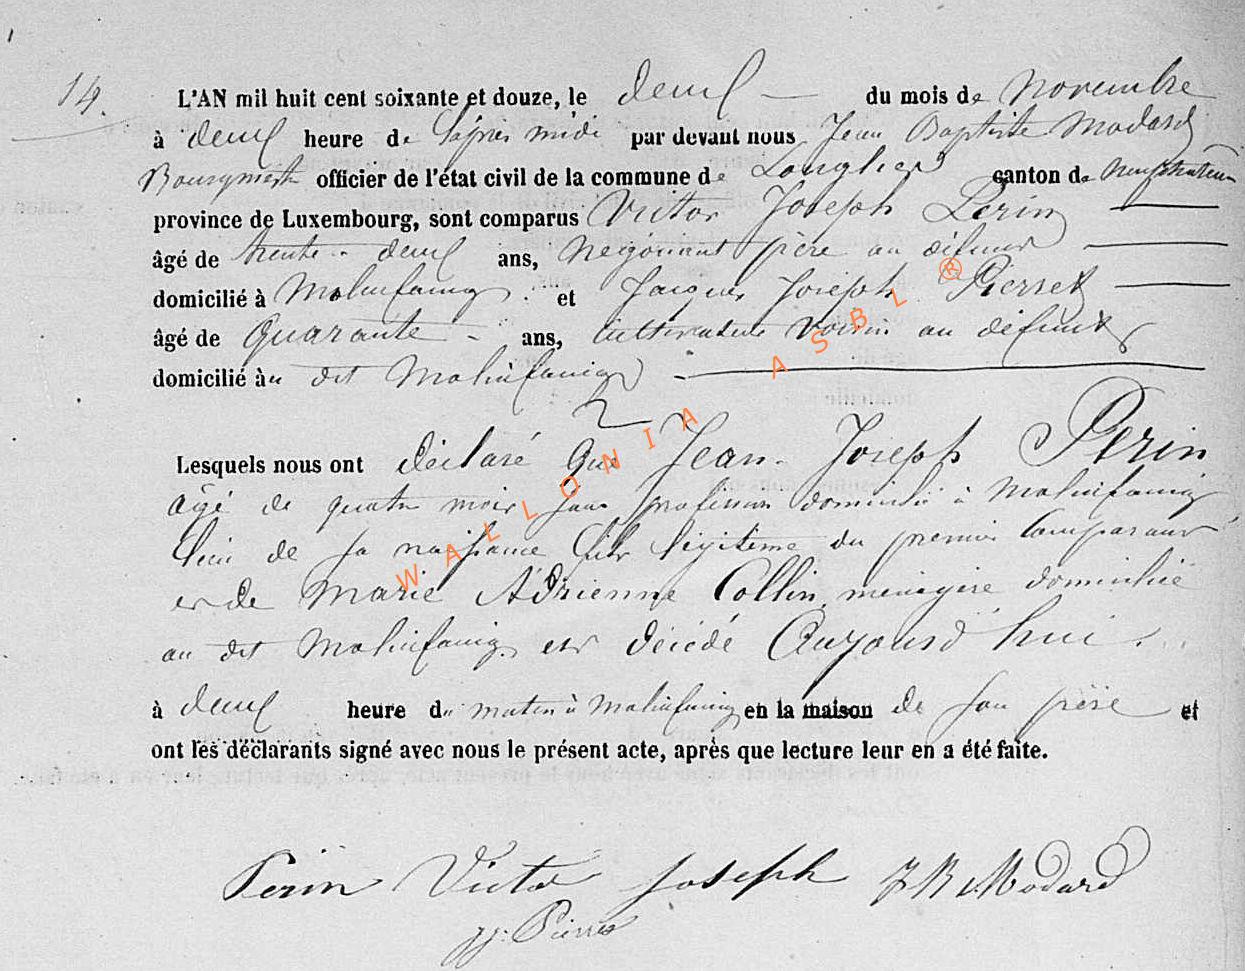 14.
L'AN mil huit cent soixante et douze, le deux du mois de Novembre
à deux heure de l'après midi par devant nous Jean Baptiste Modard
Bourgmestre officier de l'état civil de la commune de Longlier canton de Neufchateau
province de Luxembourg, sont comparus Victor Joseph Perin
âgé de trente-deux ans, négociant père au défunt
domicilié à Molinfaing et Jacques Joseph Pierret
âgé de quarante ans, cultivateur voisin au défunt
domicilié au dit Molinfaing
Lesquels nous ont déclaré que Jean Joseph Perin
âgé de quatre mois sans profession domicilié à Molinfaing
lieu de sa naissance fils légitime du premier comparant
et de Marie Adrienne Collin, ménagère domiciliée
au dit Molinfaing est décédé Aujourd'hui
à deux heure du matin à Molinfaing en la maison de son père et
ont les déclarants signé avec nous le présent acte, après que lecture leur en a été faite.
Perin Victor Joseph J B Modard
JJ. Pierret
WALLONIA ASBL ®